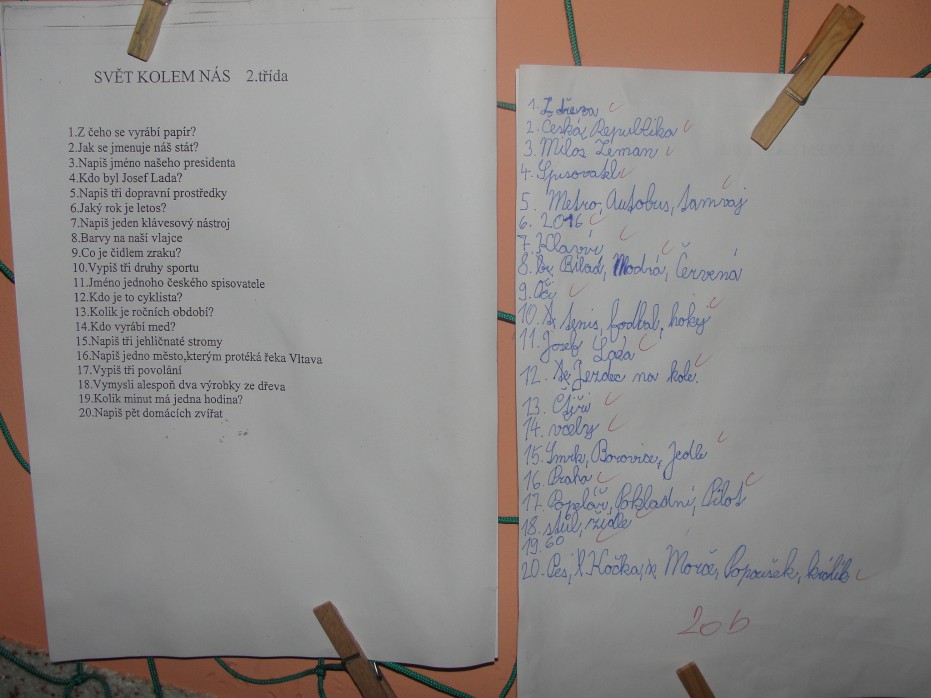 SVĚT KOLEM NÁS 2.třída
1.Z čeho se vyrábí papír?
2.Jak se jmenuje náš stát?
3.Napiš jméno našeho presidenta
4.Kdo byl Josef Lada?
5.Napiš tři dopravní prostředky
6.Jaký rok je letos?
7.Napiš jeden klávesový nástroj
8.Barvy na naší vlajce
9.Co je čidlem zraku?
10.Vypiš tři druhy sportu
11.Jméno jednoho českého spisovatele
12.Kdo je to cyklista?
13.Kolik je ročních období?
14.Kdo vyrábí med?
15.Napiš tři jehličnaté stromy
16.Napiš jedno město,kterým protéká řeka Vltava
17.Vypiš tři povolání
18.Vymysli alespoň dva výrobky ze dřeva
19.Kolik minut má jedna hodina?
20.Napiš pět domácích zvířat
1. Z dřeva
2. Česká, Republika
3. Milos Zeman
4. Spisovakl
5. Metro, Autobus, tamvaj
6. 2016
7. Klavír
8. Bílad, Modrá, Červená
9. Oči
10. tenis, fodbal, hoky
11. Josef Lada
12. Jezdec na kole.
13. Čtiři
14. včely
15. Smrk, Borovice, Jedle
16. Praha
17. Popelář, Pokladní, Pilot
18. stůl, židle
19. 60
20. Pes, Kočka, Morče, Papoušek, králík
20 b